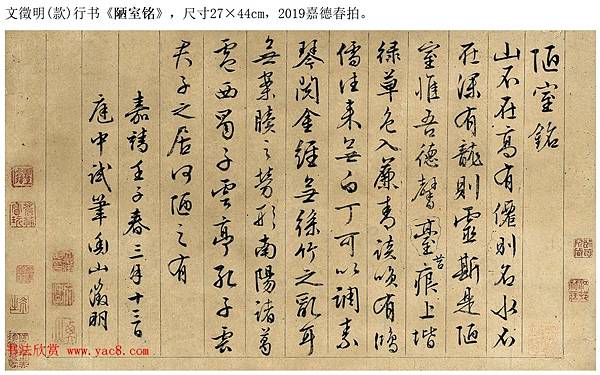 文徵明(款)行书《陋室铭》，尺寸27×44cm，2019嘉德春拍。
陋室銘
山不在高有僊則名水不
在深有龍則靈斯是陋
室惟吾德馨臺苔痕上堦
綠草色入簾青談咲有鴻
儒往来無白丁可以調素
琴閱金經無絲竹之亂耳
無案牘之勞形南陽諸葛
廬西蜀子雲亭孔子雲
夫子之居何陋之有
嘉靖壬子春三月十三日
庭中試筆山徵明
书法欣赏
www.yac8.com